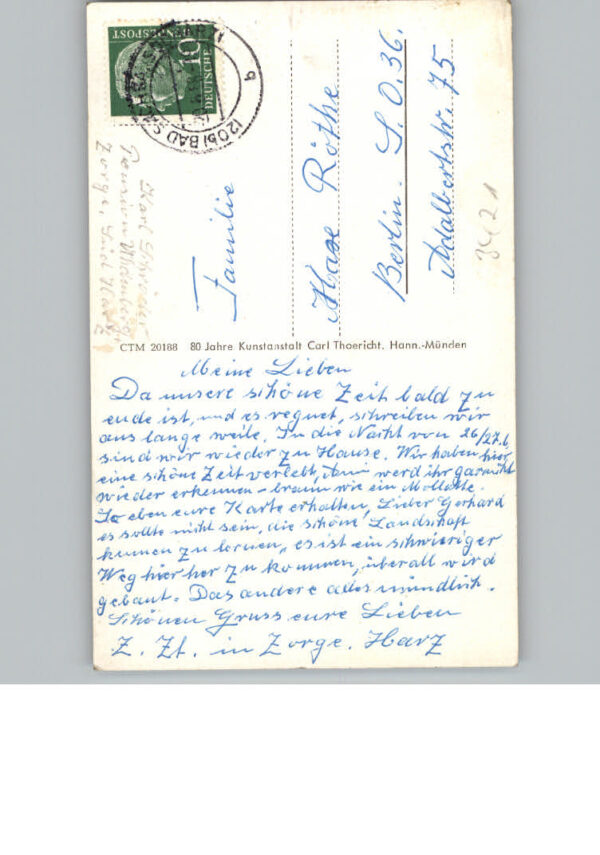 DEUTSCHE BUNDESPOST
10
(20b) BAD SACHSA
a
Karl Schneider
Pension Wittenberg
Zorge, Süd Harz
Familie
Hase Röthe
Berlin. S.O.36.
Adalbertstr. 75
3421
CTM 20188 80 Jahre Kunstanstalt Carl Thoericht, Hann.-Münden
Meine Lieben
Da unsere schöne Zeit bald zu
ende ist, und es regnet, schreiben wir
aus lange weile. In die Nacht von 26/27.6.
sind wir wieder zu Hause. Wir haben hier
eine schöne Zeit verlebt, werd ihr garnicht
wieder erkennen – braun wie ein
So eben eure Karte erhalten, Lieber Gerhard
es sollte nicht sein, die schöne Landschaft
kennen zu lernen, es ist ein schwieriger
Weg hier her zu kommen, überall wird
gebaut. Das andere alles mündlich.
Schönen Gruss eure Lieben
Z. Zt. in Zorge. Harz